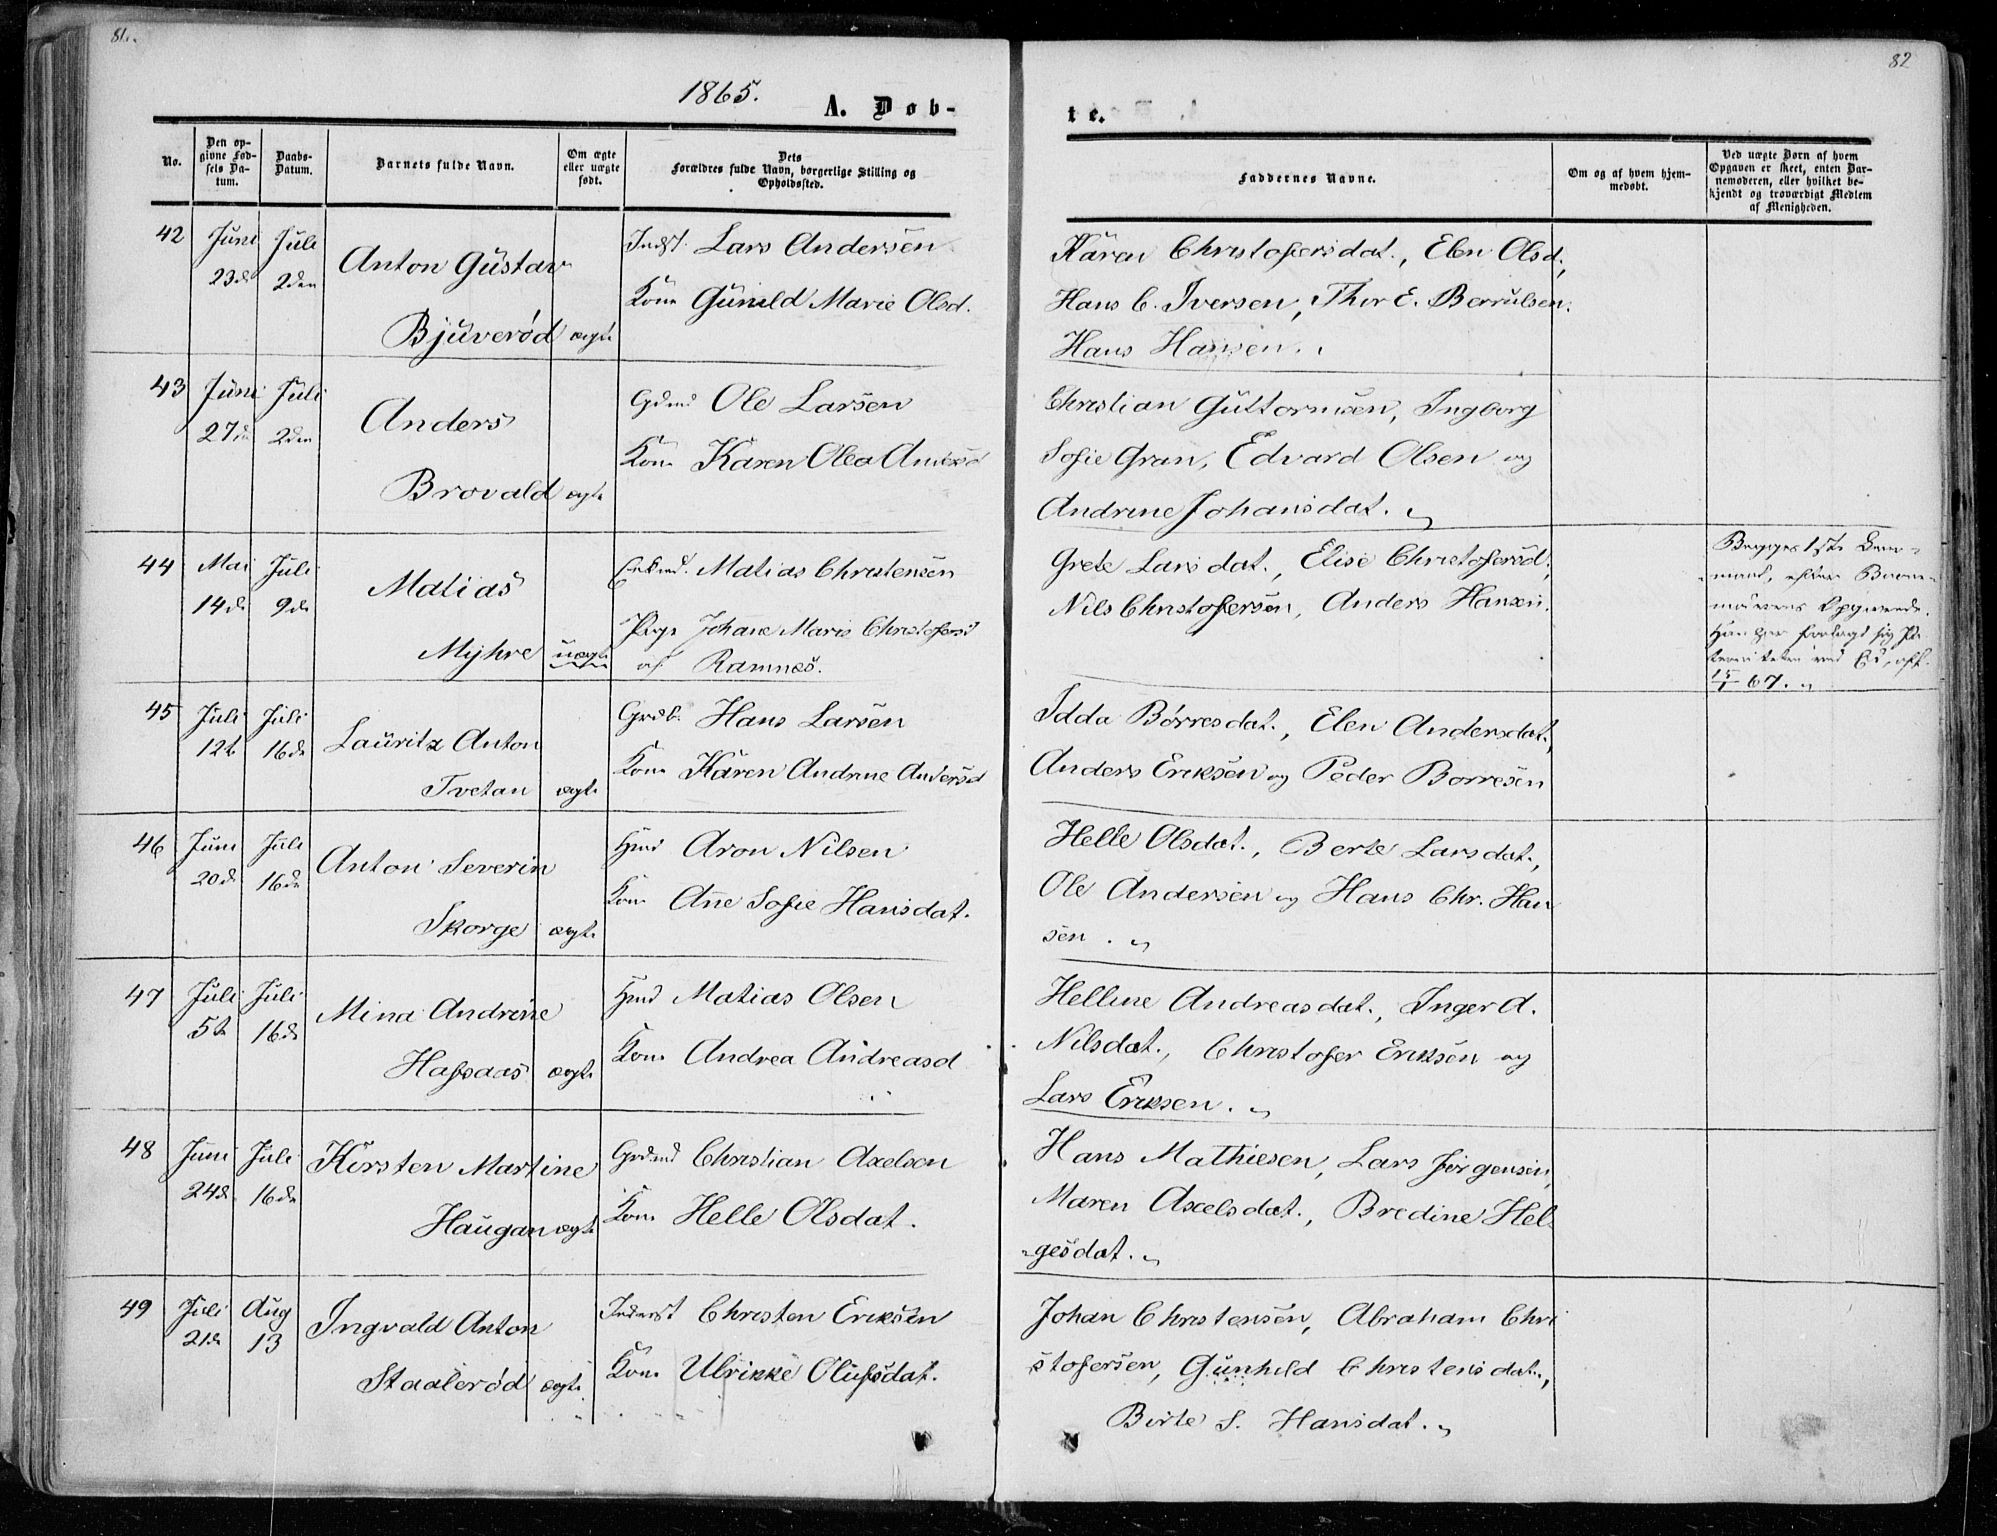 81.
82
1865.
A. Døb-
te.
No.
Den op-
givne Fød-
sels Da-
tum.
Daabs-
Datum.
Barnets fulde Navn.
Om ægte
eller uægte
født.
Dets
Forældres fulde Navn, borgerlige Stilling og
Opholdssted.
Faddernes Navne.
Om og af hvem hjem-
medøbt.
Ved uægte Børn af hvem
Opgaven er skeet, enten Bar-
nemoderen, eller hvilket be-
kjendt og troværdigt Medlem
af Menigheden.
42 Juni 23de Juli 2den
Anton Gustav
Bjuverød ægte
Indst. Lars Andersen
Kone Gunild Marie Olsd.
Karen Christofersdat., Elen Olsd.,
Hans C. Iversen, Thor E. Berrulsen.
Hans Hansen.
43 Juni 27de Juli 2den
Anders
Brovald ægte
Gdmd Ole Larsen
Kone Karen Olea Andersd
Christian Guttormsen, Ingborg
Sofie Gran, Edvard Olsen og
Andrine Johansdat.
44 Mai 14de Juli 9de
Matias
Myhre uægte
Enkmd. Matias Christensen
Pige Johane Marie Christofersd
af Ramnæs.
Grete Larsdat., Elise Christofersd.,
Nils Christofersen, Anders Hansen.
Begges 1ste
15/1 67.
45 Juli 12te Juli 16de
Lauritz Anton
Tvetan ægte
Grdb. Hans Larsen
Kone Karen Andrine Andersd
Idda Børresdat., Elen Andersdat.,
Anders Eriksen og Peder Borresen
46 Juni 20de Juli 16de
Anton Severin
Skorge ægte
Hmd Aron Nilsen
Kone Ane Sofie Hansdat.
Helle Olsdat., Berte Larsdat.,
Ole Andersen og Hans Chr. Han
sen.
47 Juli 5te Juli 16de
Mina Andrine
Hassaas ægte
Hmd Matias Olsen
Kone Andrea Andreasd
Helline Andreasdat., Inger A.
Nilsdat., Christofer Eriksen og
Lars Eriksen.
48 Juni 24de Juli 16de
Kirsten Martine
Haugan ægte
Grdmd Christian Axelsen
Kone Helle Olsdat.
Hans Mathiesen, Lars Jørgensen,
Maren Axelsdat., Bredine Hel-
-gesdat.
49 Juli 21de Aug 13
Ingvald Anton
Staalerød ægte
Inderst Christen Eriksen
Kone Ulrikke Olufsdat.
Johan Christensen, Abraham Chri
stofersen, Gunhild Christensdat.,
Birte S. Hansdat.